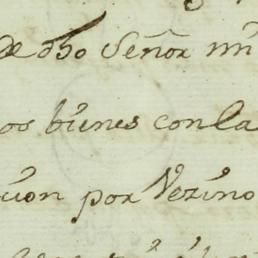 de dho Señor mi
os bienes con la
cion por Vezino